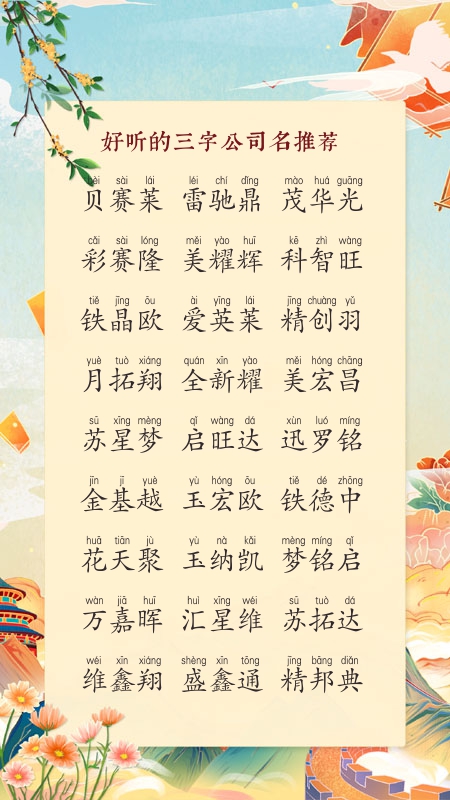 好听的三字公司名推荐
bèi sài lái léi chí dǐng mào huá guāng
贝赛莱 雷驰鼎 茂华光
cǎi sài lóng měi yào huī kē zhì wàng
彩赛隆 美耀辉 科智旺
tiě jīng ōu ài yīng lái jīng chuàng yǔ
铁晶欧 爱英莱 精创羽
yuè tuò xiáng quán xīn yào měi hóng chāng
月拓翔 全新耀 美宏昌
sū xīng mèng qǐ wàng dá xùn luó míng
苏星梦 启旺达 迅罗铭
jīn jī yuè yù hóng ōu tiě dé zhōng
金基越 玉宏欧 铁德中
huā tiān jù yù nà kǎi mèng míng qǐ
花天聚 玉纳凯 梦铭启
wàn jiā huī huì xīng wéi sū tuò dá
万嘉晖 汇星维 苏拓达
wéi xīn xiáng shèng xīn tōng jīng bāng diǎn
维鑫翔 盛鑫通 精邦典